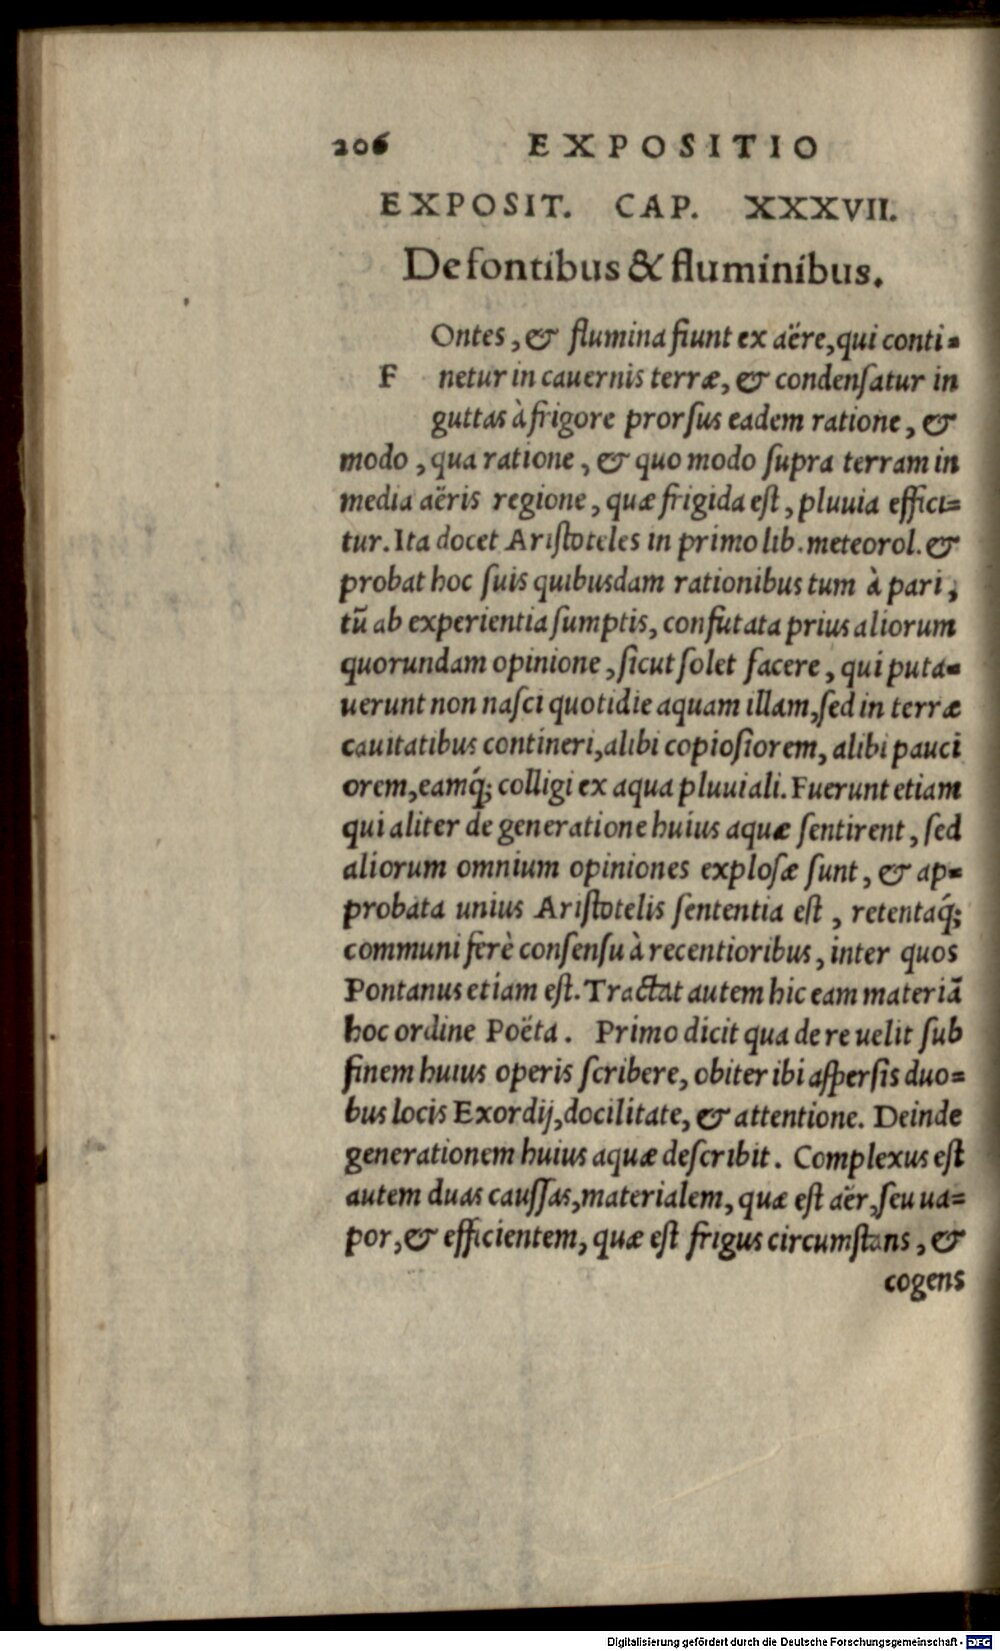 206 EXPOSITIO
EXPOSIT. CAP. XXXVII.
De fontibus & fluminibus.
Ontes, & flumina fiunt ex aëre, qui conti-
F netur in cauernis terræ, & condenſatur in
guttas à frigore prorſus eadem ratione, &
modo, qua ratione, & quo modo ſupra terram in
media aëris regione, quæ frigida eſt, pluuia effici-
tur. Ita docet Ariſtoteles in primo lib. meteorol. &
probat hoc ſuis quibusdam rationibus tum à pari,
tū ab experientia ſumptis, confutata prius aliorum
quorundam opinione, ſicut ſolet facere, qui puta-
uerunt non naſci quotidie aquam illam, ſed in terræ
cauitatibus contineri, alibi copioſiorem, alibi pauci
orem, eamq́; colligi ex aqua pluuiali. Fuerunt etiam
qui aliter de generatione huius aquæ ſentirent, ſed
aliorum omnium opiniones exploſæ ſunt, & ap-
probata unius Ariſtotelis ſententia eſt, retentaq́;
communi ferè conſenſu à recentioribus, inter quos
Pontanus etiam eſt. Tractat autem hic eam materiā
hoc ordine Poëta. Primo dicit qua de re uelit ſub
finem huius operis ſcribere, obiter ibi aſperſis duo-
bus locis Exordij, docilitate, & attentione. Deinde
generationem huius aquæ deſcribit. Complexus eſt
autem duas cauſſas, materialem, quæ eſt aër, ſeu ua-
por, & efficientem, quæ eſt frigus circumſtans, &
cogens
Digitalisierung gefördert durch die Deutsche Forschungsgemeinschaft - DFG